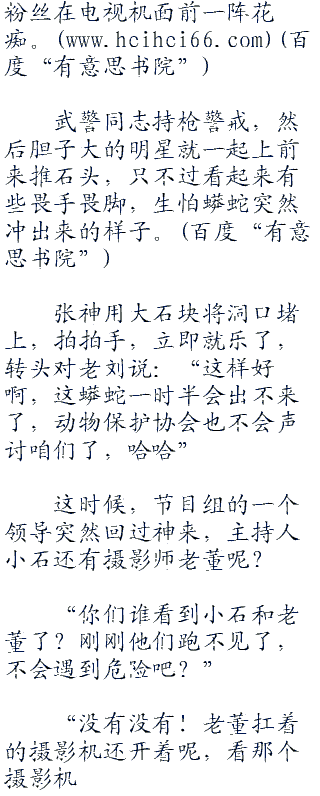 粉丝在电视机面前一阵花
痴。(www.hcihci66.com)(百
度“有意思书院”)
武警同志持枪警戒，然
后胆子大的明星就一起上前
来推石头，只不过看起来有
些畏手畏脚，生怕蟒蛇突然
冲出来的样子。(百度“有意
思书院”)
张神用大石块将洞口堵
上，拍拍手，立即就乐了，
转头对老刘说：“这样好
啊，这蟒蛇一时半会出不来
了，动物保护协会也不会声
讨咱们了，哈哈”
这时候，节目组的一个
领导突然回过神来，主持人
小石还有摄影师老董呢？
“你们谁看到小石和老
董了？刚刚他们跑不见了，
不会遇到危险吧？”
“没有没有！老董扛着
的摄影机还开着呢，看那个
摄影机